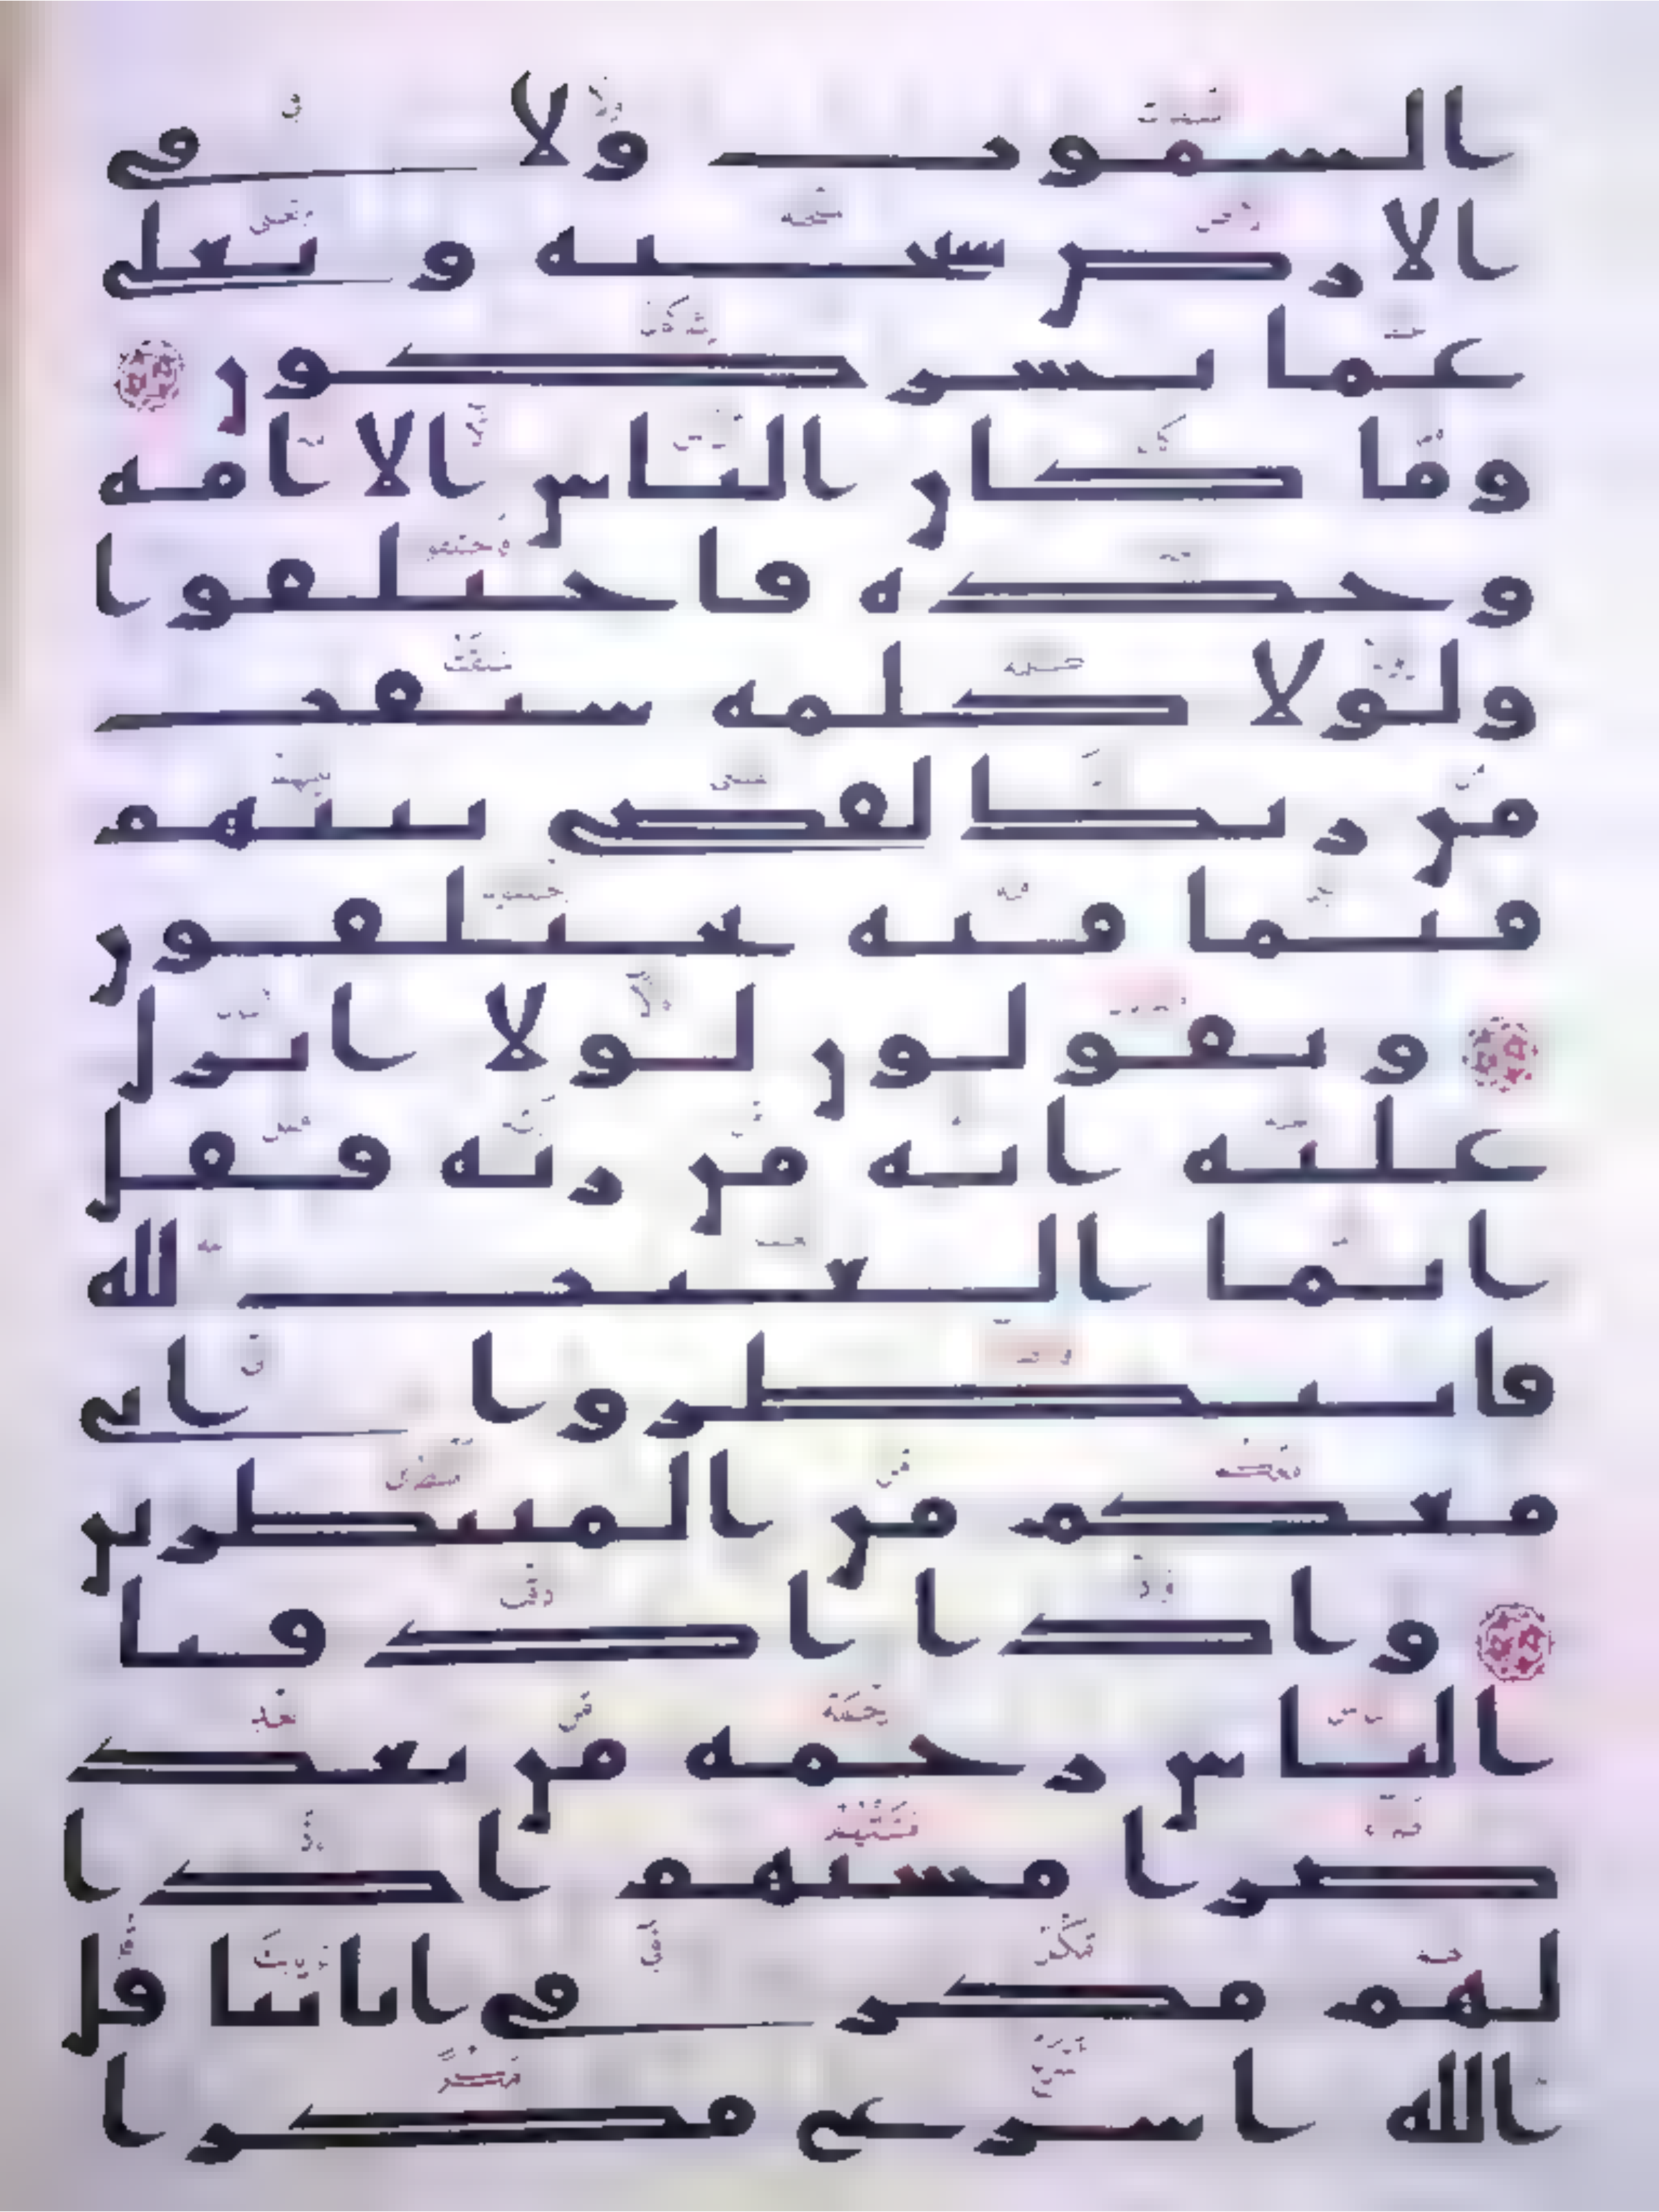 السموت ولا في
الارض سبحنه و تعلى
عما يشركون
وما كان الناس الا امه
وحده فاختلفوا
ولولا كلمه سبقت
من ربك لقضى بينهم
فيما فيه يختلفون
ويقولون لولا انزل
عليه ايه من ربه فقل
انما الغيب لله
فانتظروا اني
معكم من المنتظرين
واذا اذقنا
الناس رحمه من بعد
ضرا مستهم اذا
لهم مكر في اياتنا قل
الله اسرع مكرا